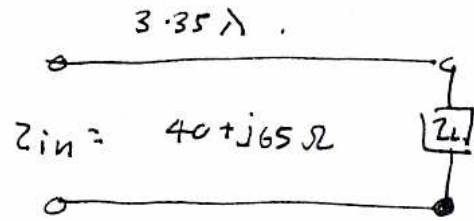 3.35 λ .
Zin = 40+j65 Ω
ZL